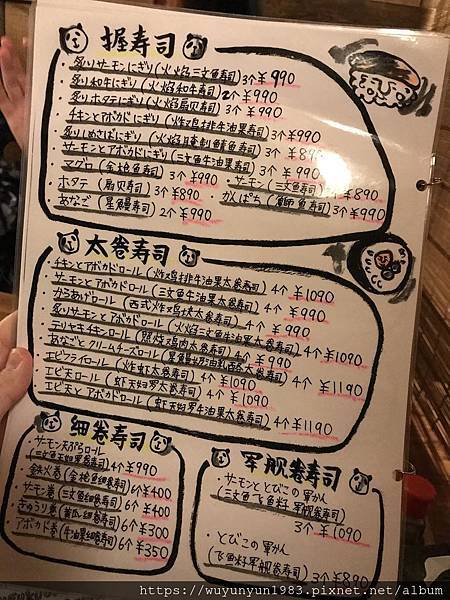 握寿司
・炙りサーモンにぎり(火焰三文魚寿司)3个¥990
・炙り和牛にぎり(火焰和牛寿司)2个¥990
・炙りホタテにぎり(火焰扇贝寿司)3个¥990
・チキンとアボカドにぎり(炸鸡排牛油果寿司)3个¥990
・炙りしめさばにぎり(火焰腌制鯖魚寿司)3个¥890
・サーモンとアボカドにぎり(三文魚牛油果寿司)3个¥990
・マグロ(金槍魚寿司)3个¥990 ・サーモン(三文魚寿司)3个¥890
・ホタテ(扇贝寿司)3个¥890 ・かんぱち(鰤魚寿司)3个¥990
・あなご(星鰻寿司)2个¥990
太卷寿司
・チキンとアボカドロール(炸鸡排牛油果太卷寿司)4个¥1090
・サーモンとアボカドロール(三文魚牛油果太卷寿司)4个¥990
・からあげロール(西式炸鸡块太卷寿司)4个¥990
・炙りサーモンとアボカドロール(火焰三文魚牛油果太卷寿司)4个¥1090
・テリヤキチキンロール(照烧鸡肉太卷寿司)4个¥990
・あなごとクリームチーズロール(星鰻奶油乳酪太卷寿司)4个¥1190
・エビフライロール(炸虾太卷寿司)4个¥1090
・エビ天ロール(虾天妇罗太卷寿司)4个¥1090
・エビ天とアボカドロール(虾天妇罗牛油果太卷寿司)4个¥1190
细卷寿司
・サーモン天ぷらロール
(三文魚天妇罗細卷寿司)4个¥990
・鉄火巻(金槍魚細卷寿司)6个¥400
・サーモン巻(三文魚細卷寿司)6个¥400
・きゅうり巻(黄瓜細卷寿司)6个¥300
・アボカド巻(牛油果細卷寿司)6个¥350
军舰卷寿司
・サーモンととびこの軍かん
(三文魚飞魚籽军舰卷寿司)
3个¥1090
・とびこの軍かん
(飞魚籽军舰卷寿司)
3个¥890
https://wuyunyun1983.pixnet.net/album